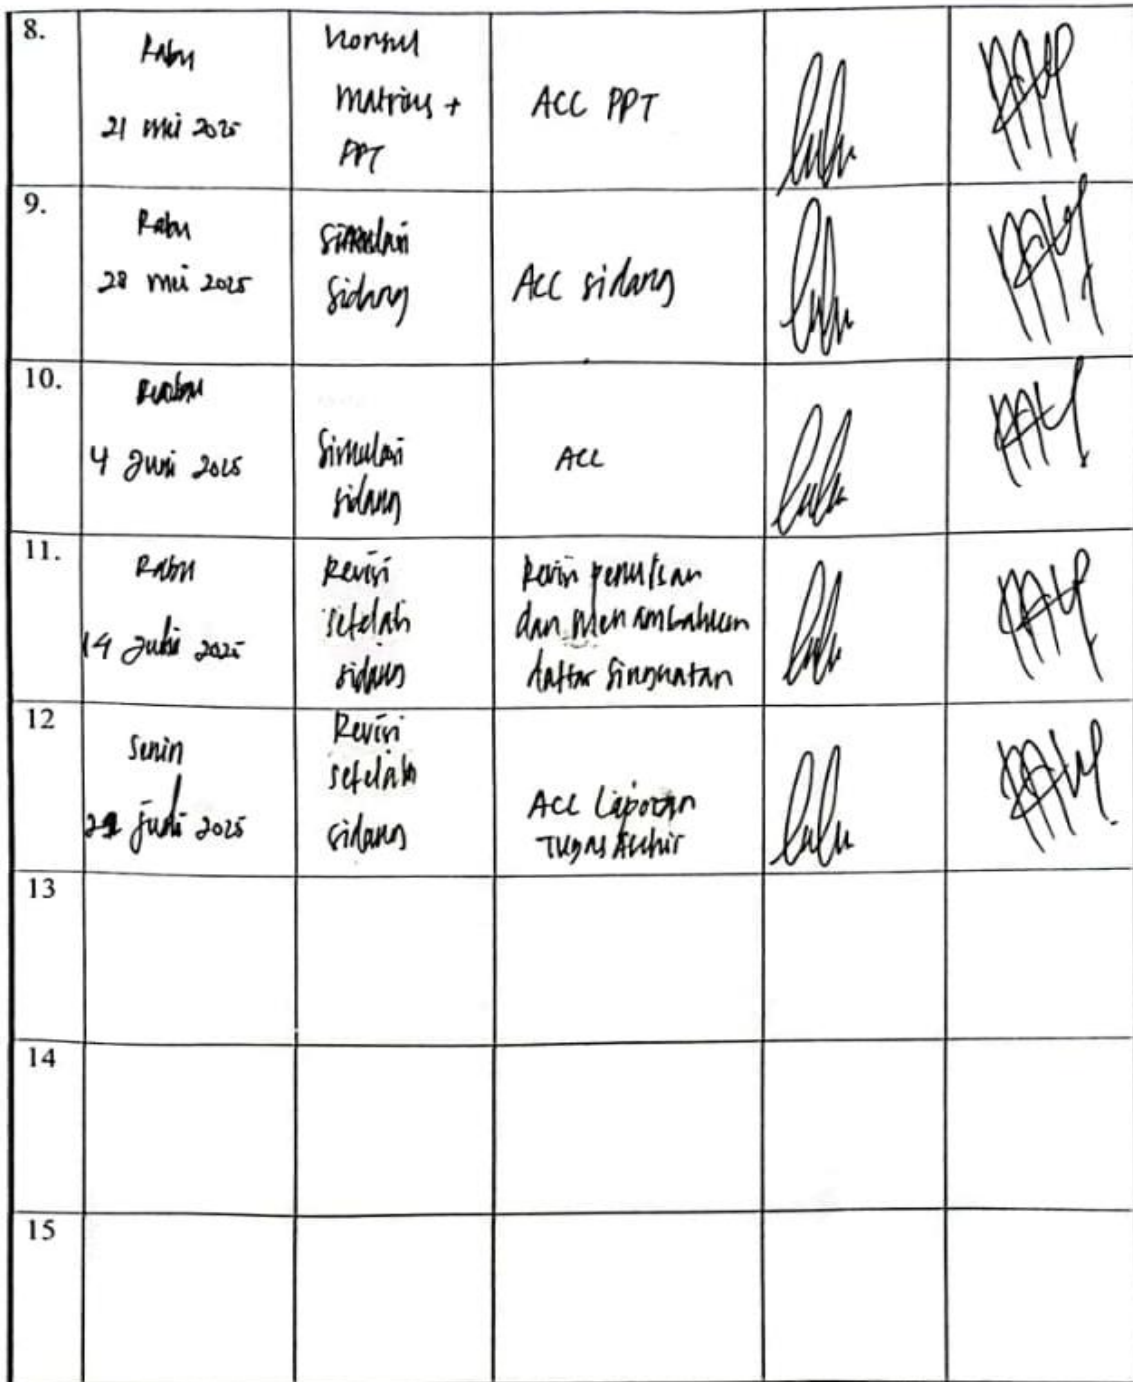 8.
Rabu
21 mei 2025
Konsul
Matriks +
PPT
ACC PPT
9.
Rabu
28 mei 2025
Simulasi
Sidang
ACC sidang
10.
Rabu
4 Juni 2025
Simulasi
sidang
ACC
11.
Rabu
14 Juli 2025
Revisi
setelah
sidang
Revisi penulisan
dan menambahkan
daftar Singkatan
12
Senin
Juli 2025
Revisi
setelah
sidang
ACC Laporan
Tugas Akhir
13
14
15